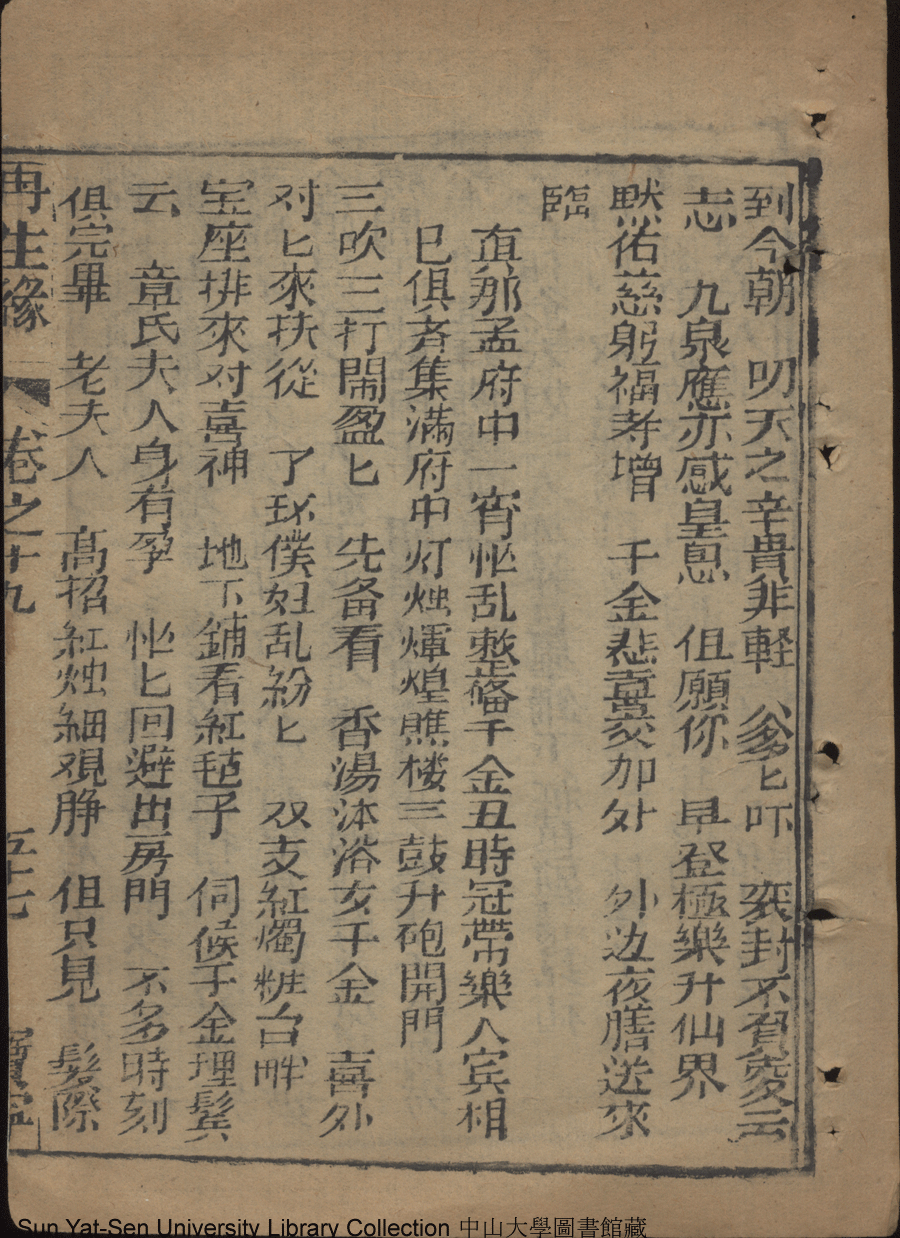 到今朝 叨天之辛貴非軽 爹匕吓 襃封不負凌云
志 九泉應亦感皇恩 但願你 早登極樂升仙界
黙佑慈躬福寿增 千金悲喜交加处 外边夜膳送來
臨
直那孟府中一宵忙乱整備千金丑時冠帶樂人宾相
已俱斉集滿府中灯烛輝煌瞧楼三鼓升砲開門
三吹三打閙盈匕 先备看 香湯沐浴女千金 喜外
对匕來扶從 了环僕妇乱紛匕 双支紅燭粧台畔
宝座排來对喜神 地下鋪看紅毡子 伺候千金理鬂
云 章氏夫人身有孕 忙匕回避出房門 不多時刻
俱完畢 老夫人 高招紅烛細覌睁 但只見 髮際
再生緣 卷之十九 五十七
Sun Yat-Sen University Library Collection 中山大學圖書館藏